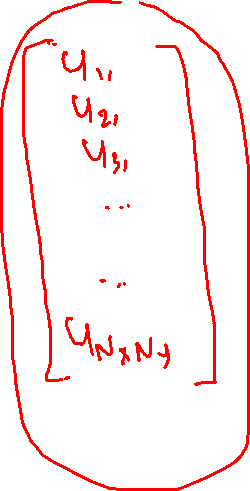 u₁₁
u₂₁
u₃₁
...
...
u_NxNy